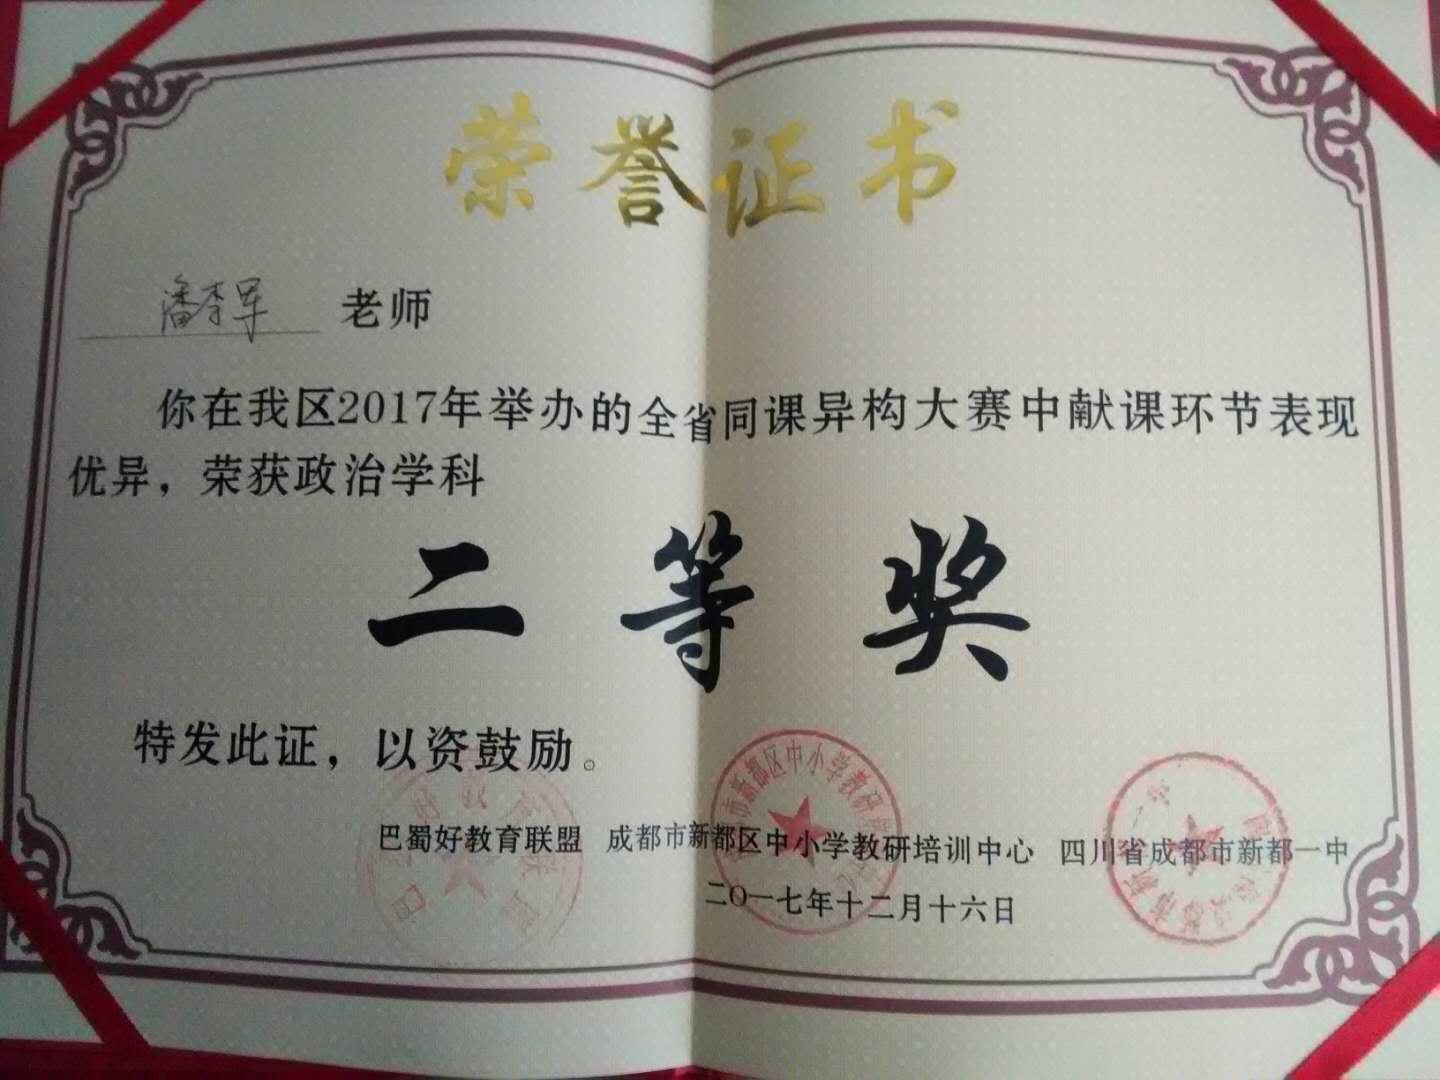 荣誉证书
潘李军 老师
你在我区2017年举办的全省同课异构大赛中献课环节表现
优异，荣获政治学科
二等奖
特发此证，以资鼓励。
巴蜀好教育联盟 成都市新都区中小学教研培训中心 四川省成都市新都一中
二〇一七年十二月十六日